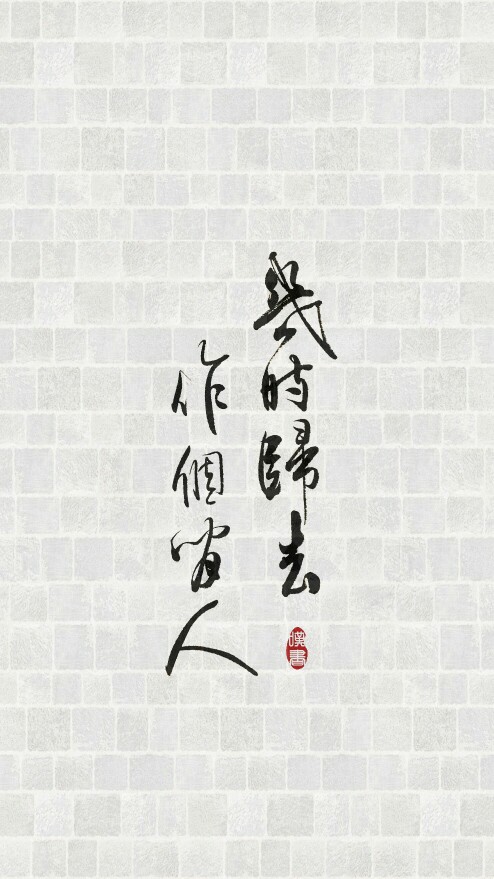 幾時歸去
作個閒人